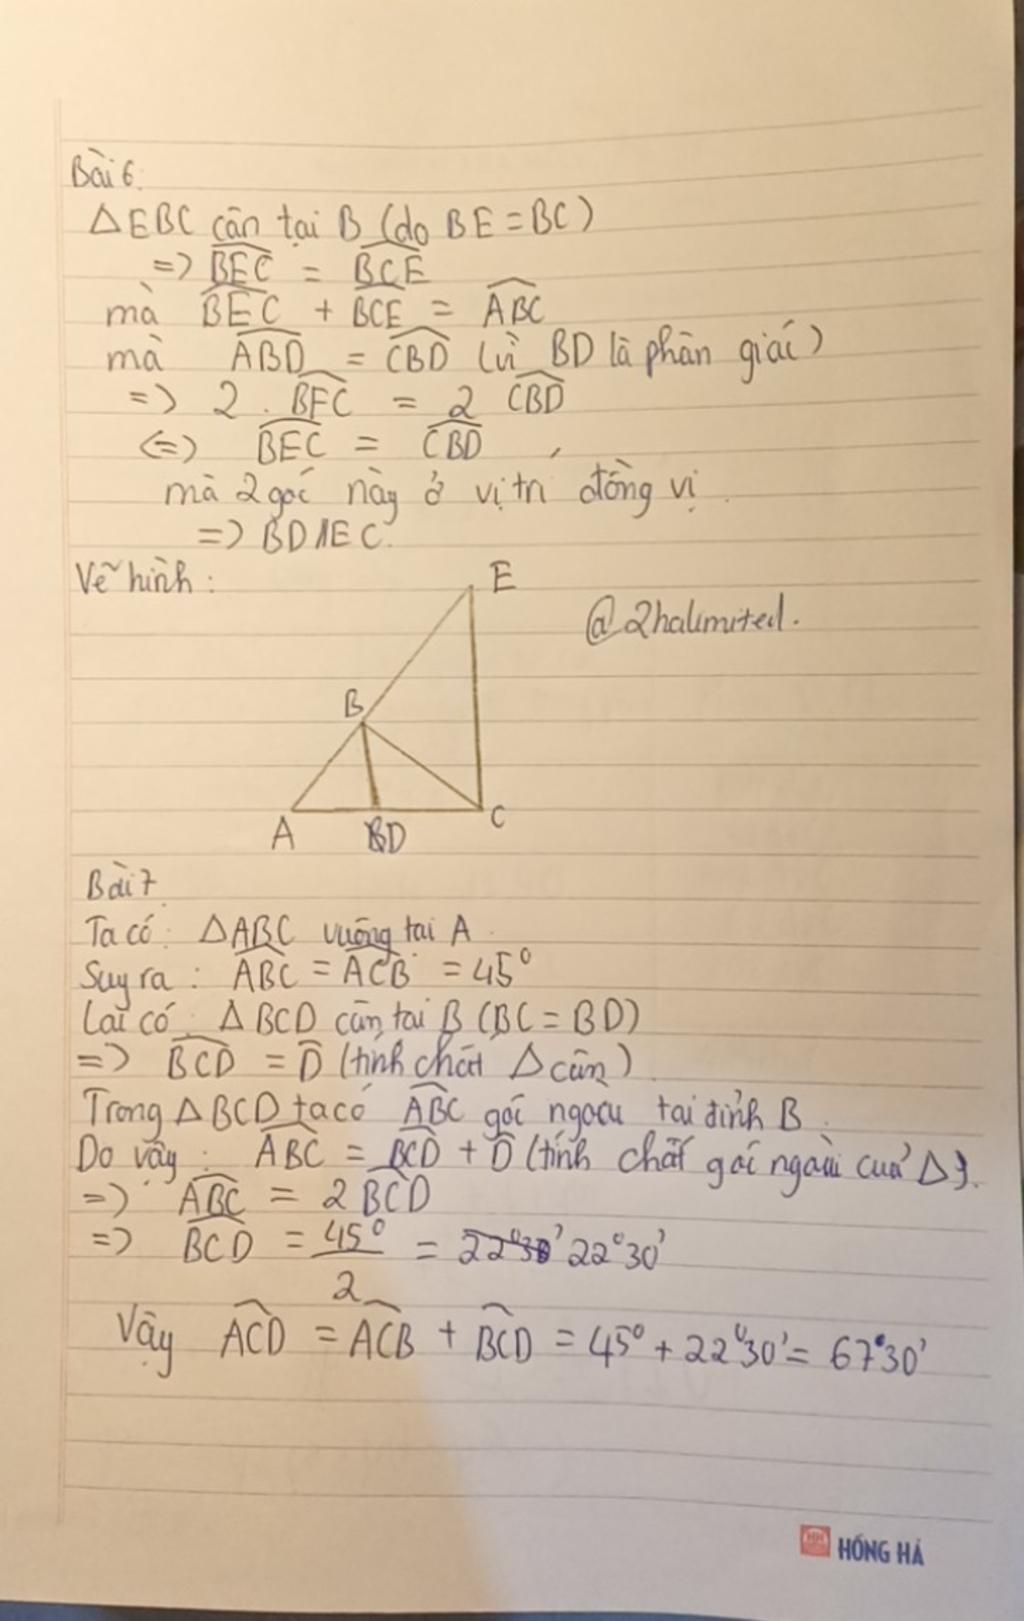 Bài 6:
ΔEBC cân tại B (do BE = BC)
=> BEC = BCE
mà BEC + BCE = ABC
mà ABD = CBD (vì BD là phân giác)
=> 2 . BEC = 2 CBD
<=> BEC = CBD,
mà 2 góc này ở vị trí đồng vị.
=> BD // EC.
Vẽ hình:
E
@2halimited.
B
A
D
C
Bài 7
Ta có: ΔABC vuông tai A.
Suy ra: ABC = ACB = 45°
Lai có: ΔBCD cân tai B (BC = BD)
=> BCD = D (tính chất Δ cân)
Trong ΔBCD ta có ABC góc ngoài tai đỉnh B.
Do vậy: ABC = BCD + D (tính chất góc ngoài của Δ).
=> ABC = 2 BCD
=> BCD = 45°/2 = 22°30' 22°30'
Vậy ACD = ACB + BCD = 45° + 22°30' = 67°30'
HỒNG HÀ